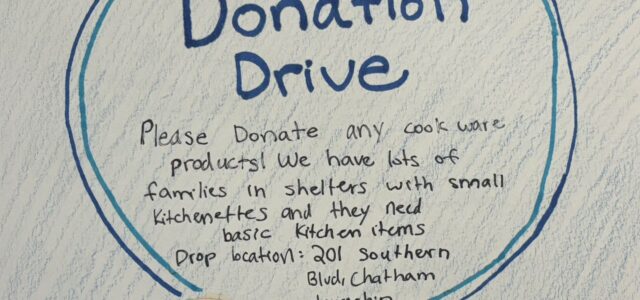 Donation
Drive
Please Donate any cook ware
products! We have lots of
families in shelters with small
Kitchenettes and they need
basic Kitchen items
Drop location: 201 Southern
Blvd, Chatham